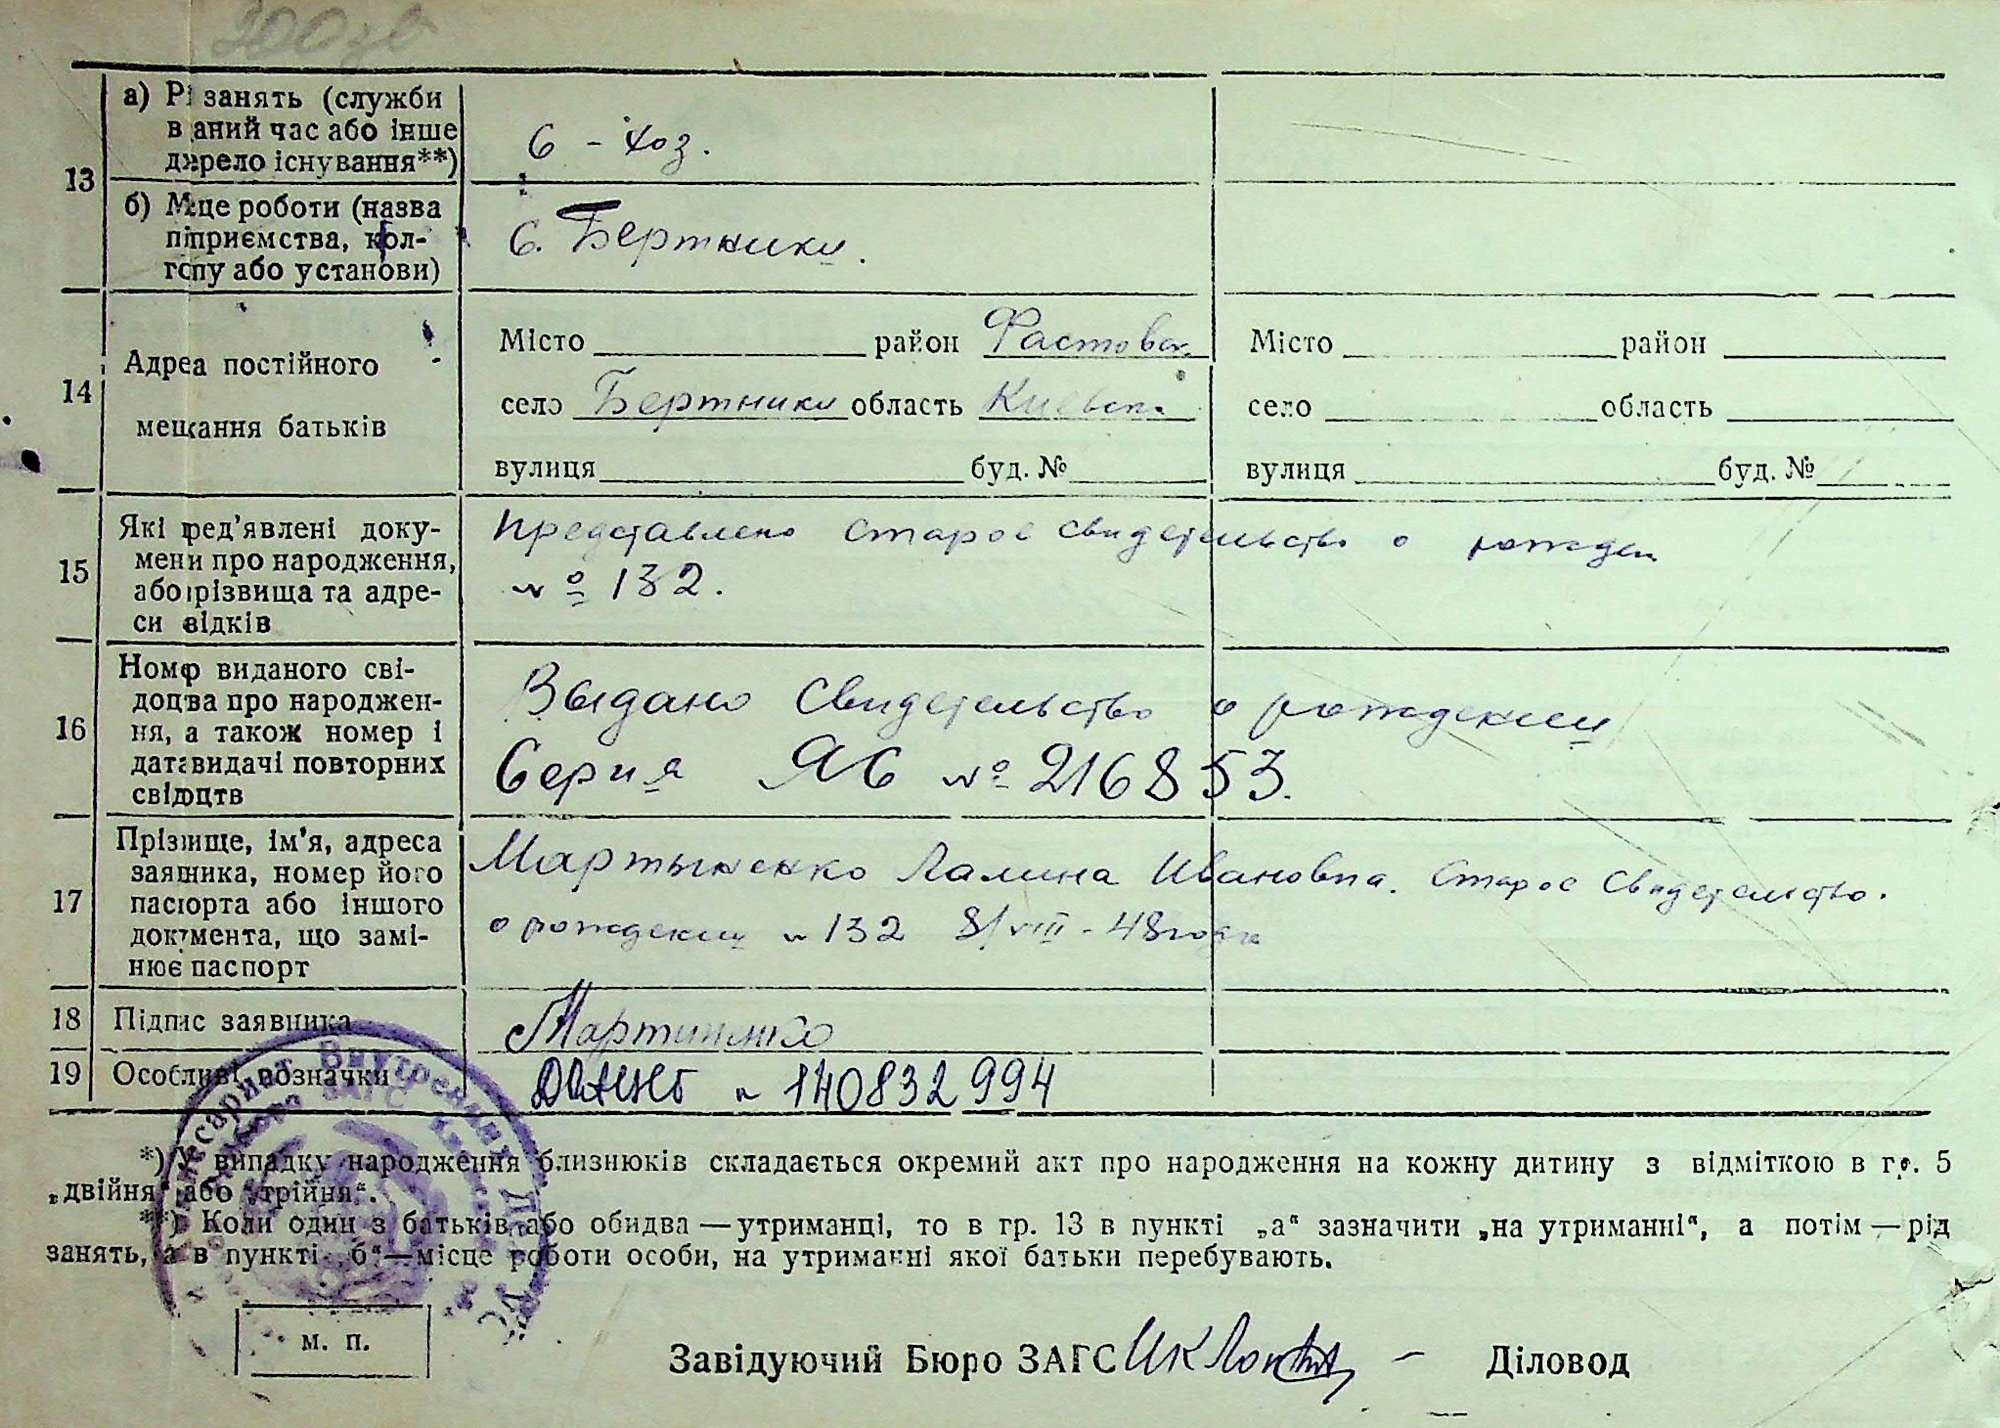 13
а) Рі занять (служби
в даний час або інше
джрело існування**)
с - хоз.
б) Місце роботи (назва
підприємства, кол-
госпу або установи)
с. Бертники.
14
Адреса постійного
мешкання батьків
Місто район Фастовск.
село Бертники область Киевск.
вулиця буд. №
Місто район
село область
вулиця буд. №
15
Які пред’явлені доку-
менти про народження,
або прізвища та адре-
си свідків
Представлено старое свидетельство о рожден
№ 132.
16
Номер виданого сві-
доцтва про народжен-
ня, а також номер і
дата видачі повторних
свідоцтв
Выдано свидетельство о рождении
Серия ЯС № 216853.
17
Прізвище, ім’я, адреса
заявника, номер його
паспорта або іншого
документа, що замі-
нює паспорт
Мартыненко Галина Ивановна. Старое свидетельство.
о рождении № 132 8/VIII - 48 года
18 Підпис заявника
Мартиненко
19 Особливі позначки
№ 140832994
*) У випадку народження близнюків складається окремий акт про народження на кожну дитину з відміткою в гр. 5
„двійня“ або „трійня“.
**) Коли один з батьків або обидва — утриманці, то в гр. 13 в пункті „а“ зазначити „на утриманні“, а потім — рід
занять, а в пункті „б“ — місце роботи особи, на утриманні якої батьки перебувають.
м. п.
Завідуючий Бюро ЗАГС
Діловод